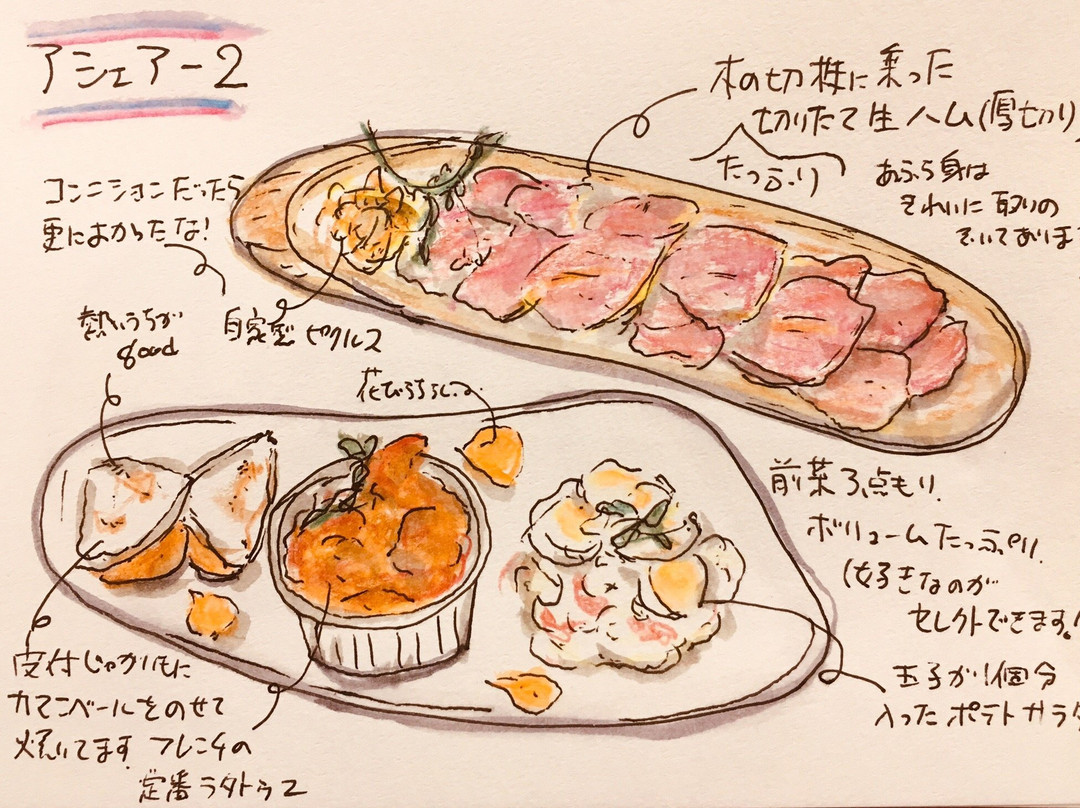 アシェアー2
木の切株に乗った
切りたて生ハム(厚切り)
たっぷり
あぶら身は
きれいに取りの
ぞいておりま
コンニションだったら
更によかったな!
自家製ピクルス
熱いうちが
good
花びらちらして
前菜3点もり.
ボリュームたっぷり.
(好きなのが
セレクトできます!
玉子が1個分
入ったポテトサラダ
皮付じゃがいもに
カマンベールをのせて
焼いてます フレンチの
定番ラタトゥユ